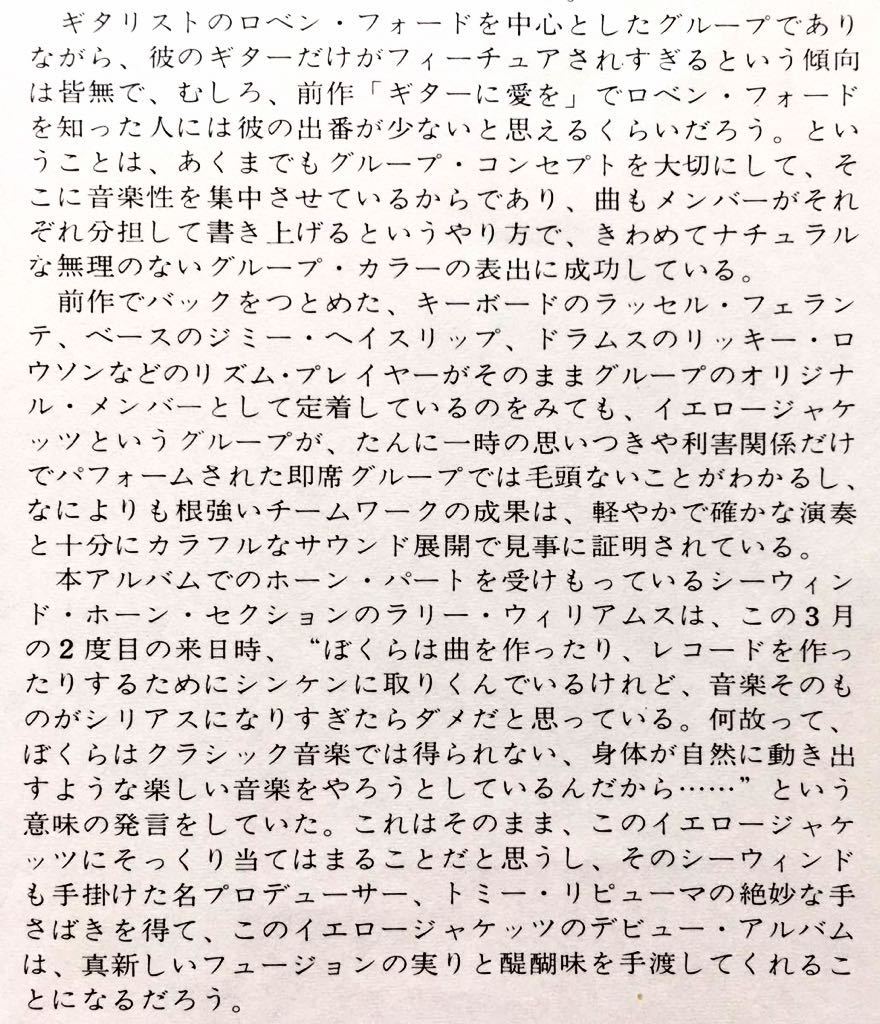 ギタリストのロベン・フォードを中心としたグループであり
ながら、彼のギターだけがフィーチュアされすぎるという傾向
は皆無で、むしろ、前作「ギターに愛を」でロベン・フォード
を知った人には彼の出番が少ないと思えるくらいだろう。とい
うことは、あくまでもグループ・コンセプトを大切にして、そ
こに音楽性を集中させているからであり、曲もメンバーがそれ
ぞれ分担して書き上げるというやり方で、きわめてナチュラル
な無理のないグループ・カラーの表出に成功している。
前作でバックをつとめた、キーボードのラッセル・フェラン
テ、ベースのジミー・ヘイスリップ、ドラムスのリッキー・ロ
ウソンなどのリズム・プレイヤーがそのままグループのオリジナ
ル・メンバーとして定着しているのをみても、イエロージャケ
ッツというグループが、たんに一時の思いつきや利害関係だけ
でパフォームされた即席グループでは毛頭ないことがわかるし、
なによりも根強いチームワークの成果は、軽やかで確かな演奏
と十分にカラフルなサウンド展開で見事に証明されている。
本アルバムでのホーン・パートを受けもっているシーウィン
ド・ホーン・セクションのラリー・ウィリアムスは、この3月
の2度目の来日時、“ぼくらは曲を作ったり、レコードを作っ
たりするためにシンケンに取りくんでいるけれど、音楽そのも
のがシリアスになりすぎたらダメだと思っている。何故って、
ぼくらはクラシック音楽では得られない、身体が自然に動き出
すような楽しい音楽をやろうとしているんだから……”という
意味の発言をしていた。これはそのまま、このイエロージャケ
ッツにそっくり当てはまることだと思うし、そのシーウィンド
も手掛けた名プロデューサー、トミー・リピューマの絶妙な手
さばきを得て、このイエロージャケッツのデビュー・アルバム
は、真新しいフュージョンの実りと醍醐味を手渡してくれるこ
とになるだろう。